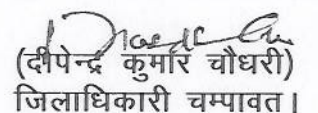 (दीपेन्द्र कुमार चौधरी)
जिलाधिकारी चम्पावत।